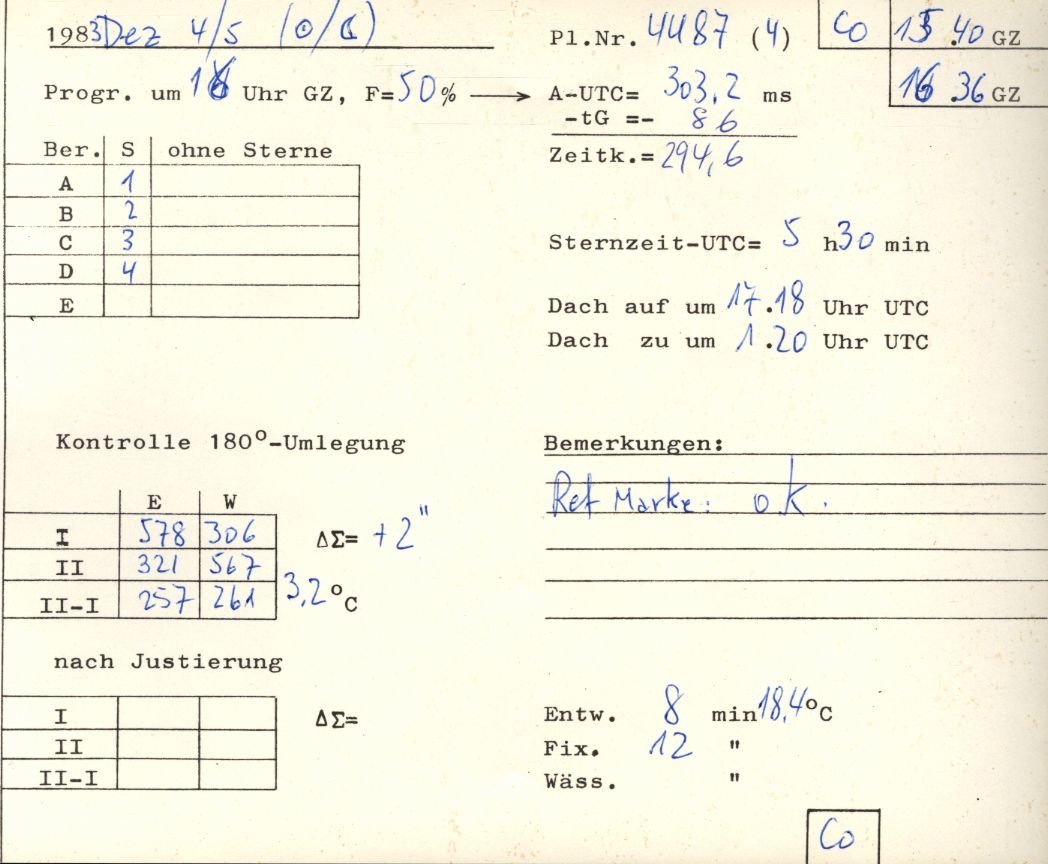 1983 Dez 4/5 (⊙/☾) Pl.Nr. 4487 (4) Co 15.40 GZ
16.36 GZ
Progr. um 16 Uhr GZ, F=50% → A-UTC= 303,2 ms
-tG =- 86
Zeitk.= 294,6
Ber. S ohne Sterne
A 1
B 2
C 3
D 4
E
Sternzeit-UTC= 5 h 30 min
Dach auf um 17.18 Uhr UTC
Dach zu um 1.20 Uhr UTC
Kontrolle 180°-Umlegung
E W
I 578 306 ΔΣ= +2"
II 321 567
II-I 257 261 3,2°C
Bemerkungen:
Ref Marke: ok.
nach Justierung
I ΔΣ=
II
II-I
Entw. 8 min 18,4°C
Fix. 12 "
Wäss. "
Co